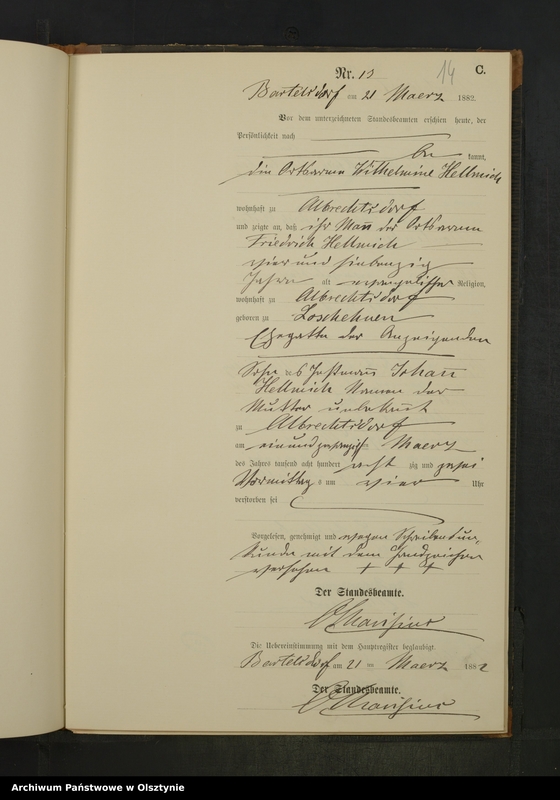 14 C.
Nr. 13
Bartelsdorf am 21 Maerz 1882.
Vor dem unterzeichneten Standesbeamten erschien heute, der
Persönlichkeit nach
be kannt,
die Ortsarme Wilhelmine Hellmich
wohnhaft zu Albrechtsdorf
und zeigte an, daß ihr Mann der Ortsarme
Friedrich Hellmich
vier und siebenzig
Jahre alt evangelischer Religion,
wohnhaft zu Albrechtsdorf
geboren zu Loschehnen
Ehegatte der Anzeigenden
Sohn des Instmann Johann
Hellmich Namen der
Mutter unbekannt
zu Albrechtsdorf
am einundzwanzigst Maerz
des Jahres tausend acht hundert acht zig und zwei
Vormittag s um vier Uhr
verstorben sei
Vorgelesen, genehmigt und wegen Schreibensun
kunde mit dem Handzeichen
versehen + + +
Der Standesbeamte.
Die Uebereinstimmung mit dem Hauptregister beglaubigt
Bartelsdorf am 21 ten Maerz 1882
Der Standesbeamte.
Archiwum Państwowe w Olsztynie